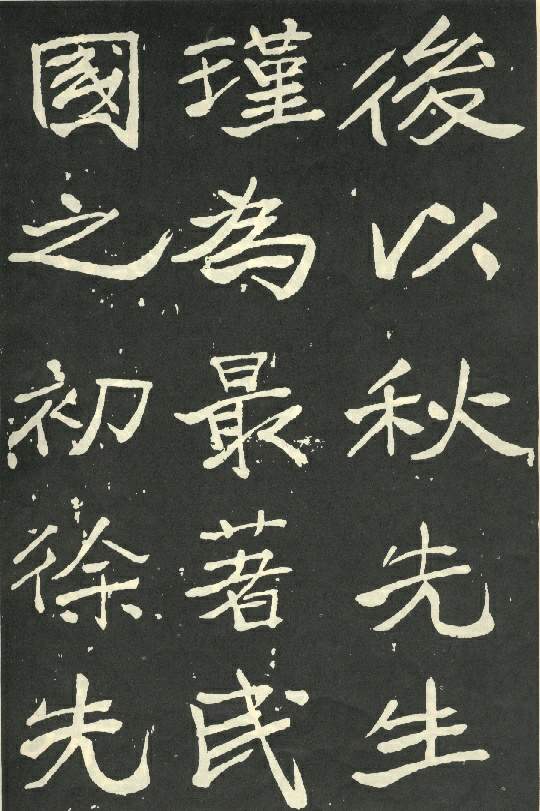 後以秋先生
瑾為最著民
國之初徐先